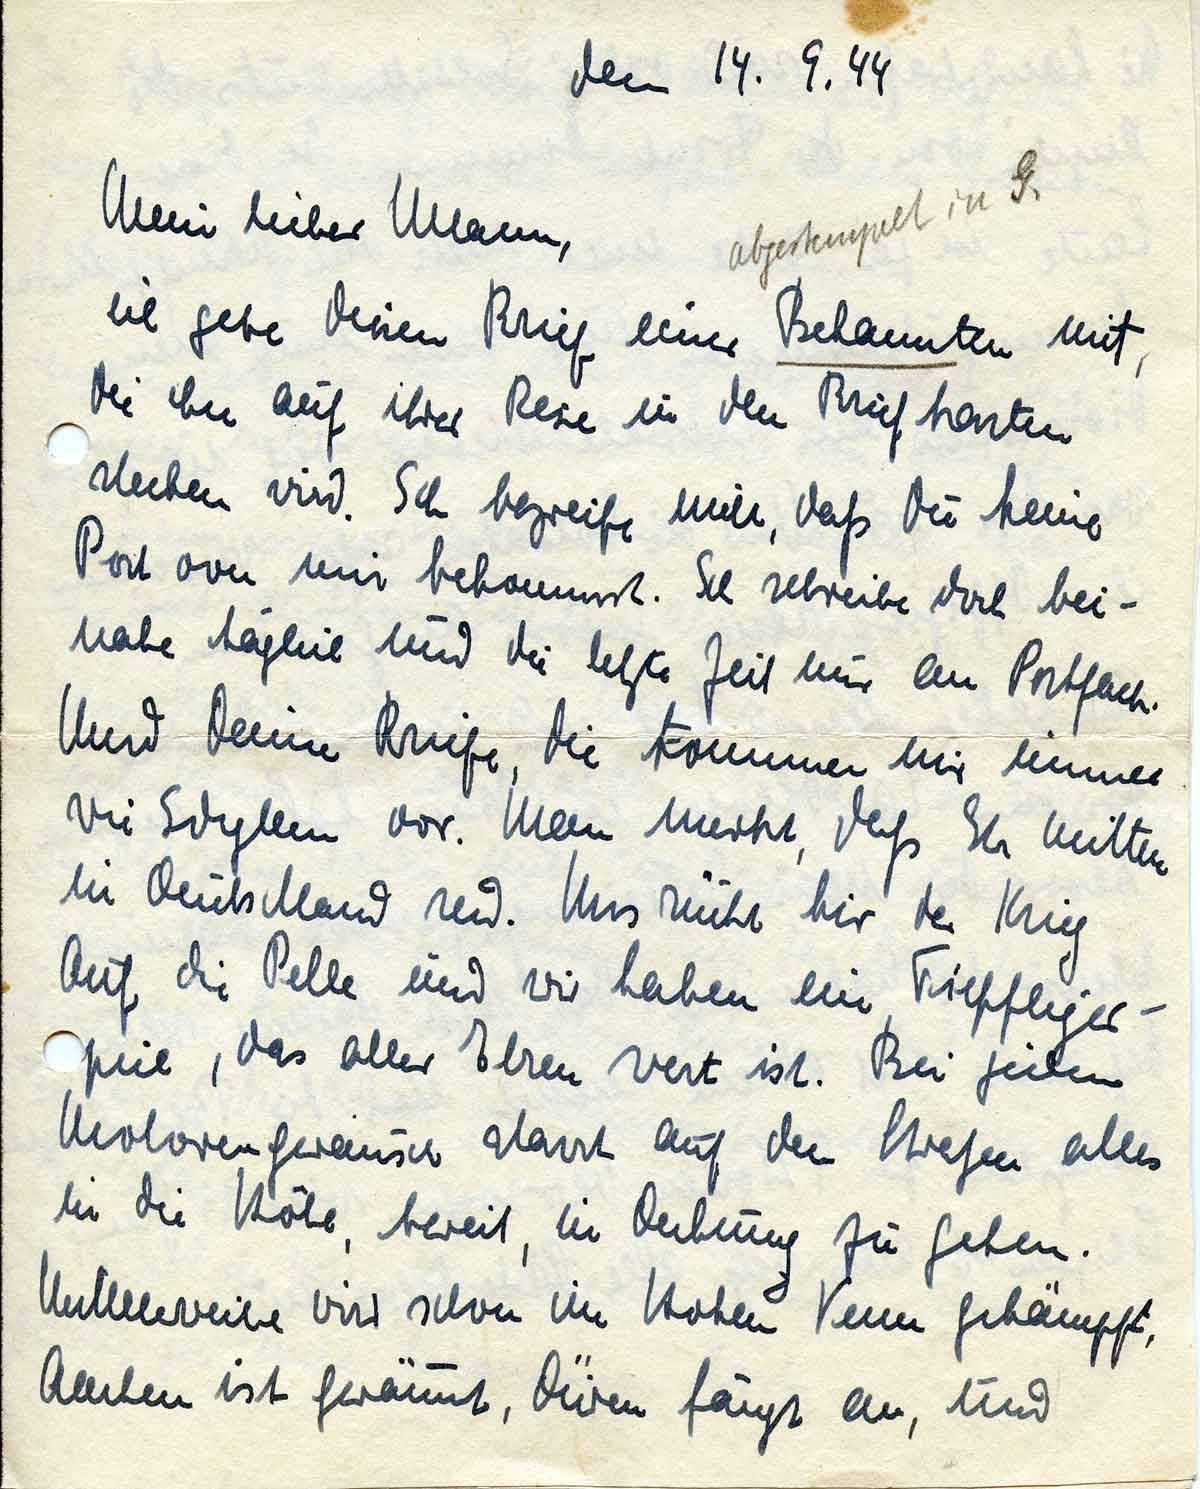 den 14. 9. 44
abgestempelt in G.
Mein lieber Mann,
ich gebe diesen Brief einer Bekannten mit,
die ihn auf ihrer Reise in den Briefkasten
stecken wird. Ich begreife nicht, daß Du keine
Post von mir bekommst. Ich schreibe doch bei-
nahe täglich und die letzte Zeit nur an Postfach.
Und Deine Briefe, die kommen mir immer
wie Idyllen vor. Man merkt, daß Ihr mitten
in Deutschland seid. Uns rückt hier der Krieg
auf die Pelle und wir haben ein Tiefflieger-
spiel, das aller Ehren wert ist. Bei jedem
Motorengeräusch starrt auf den Straßen alles
in die Höhe, bereit, in Deckung zu gehen.
Mittlerweile wird schon im Hohen Venn gekämpft,
Aachen ist geräumt, Düren fängt an, und